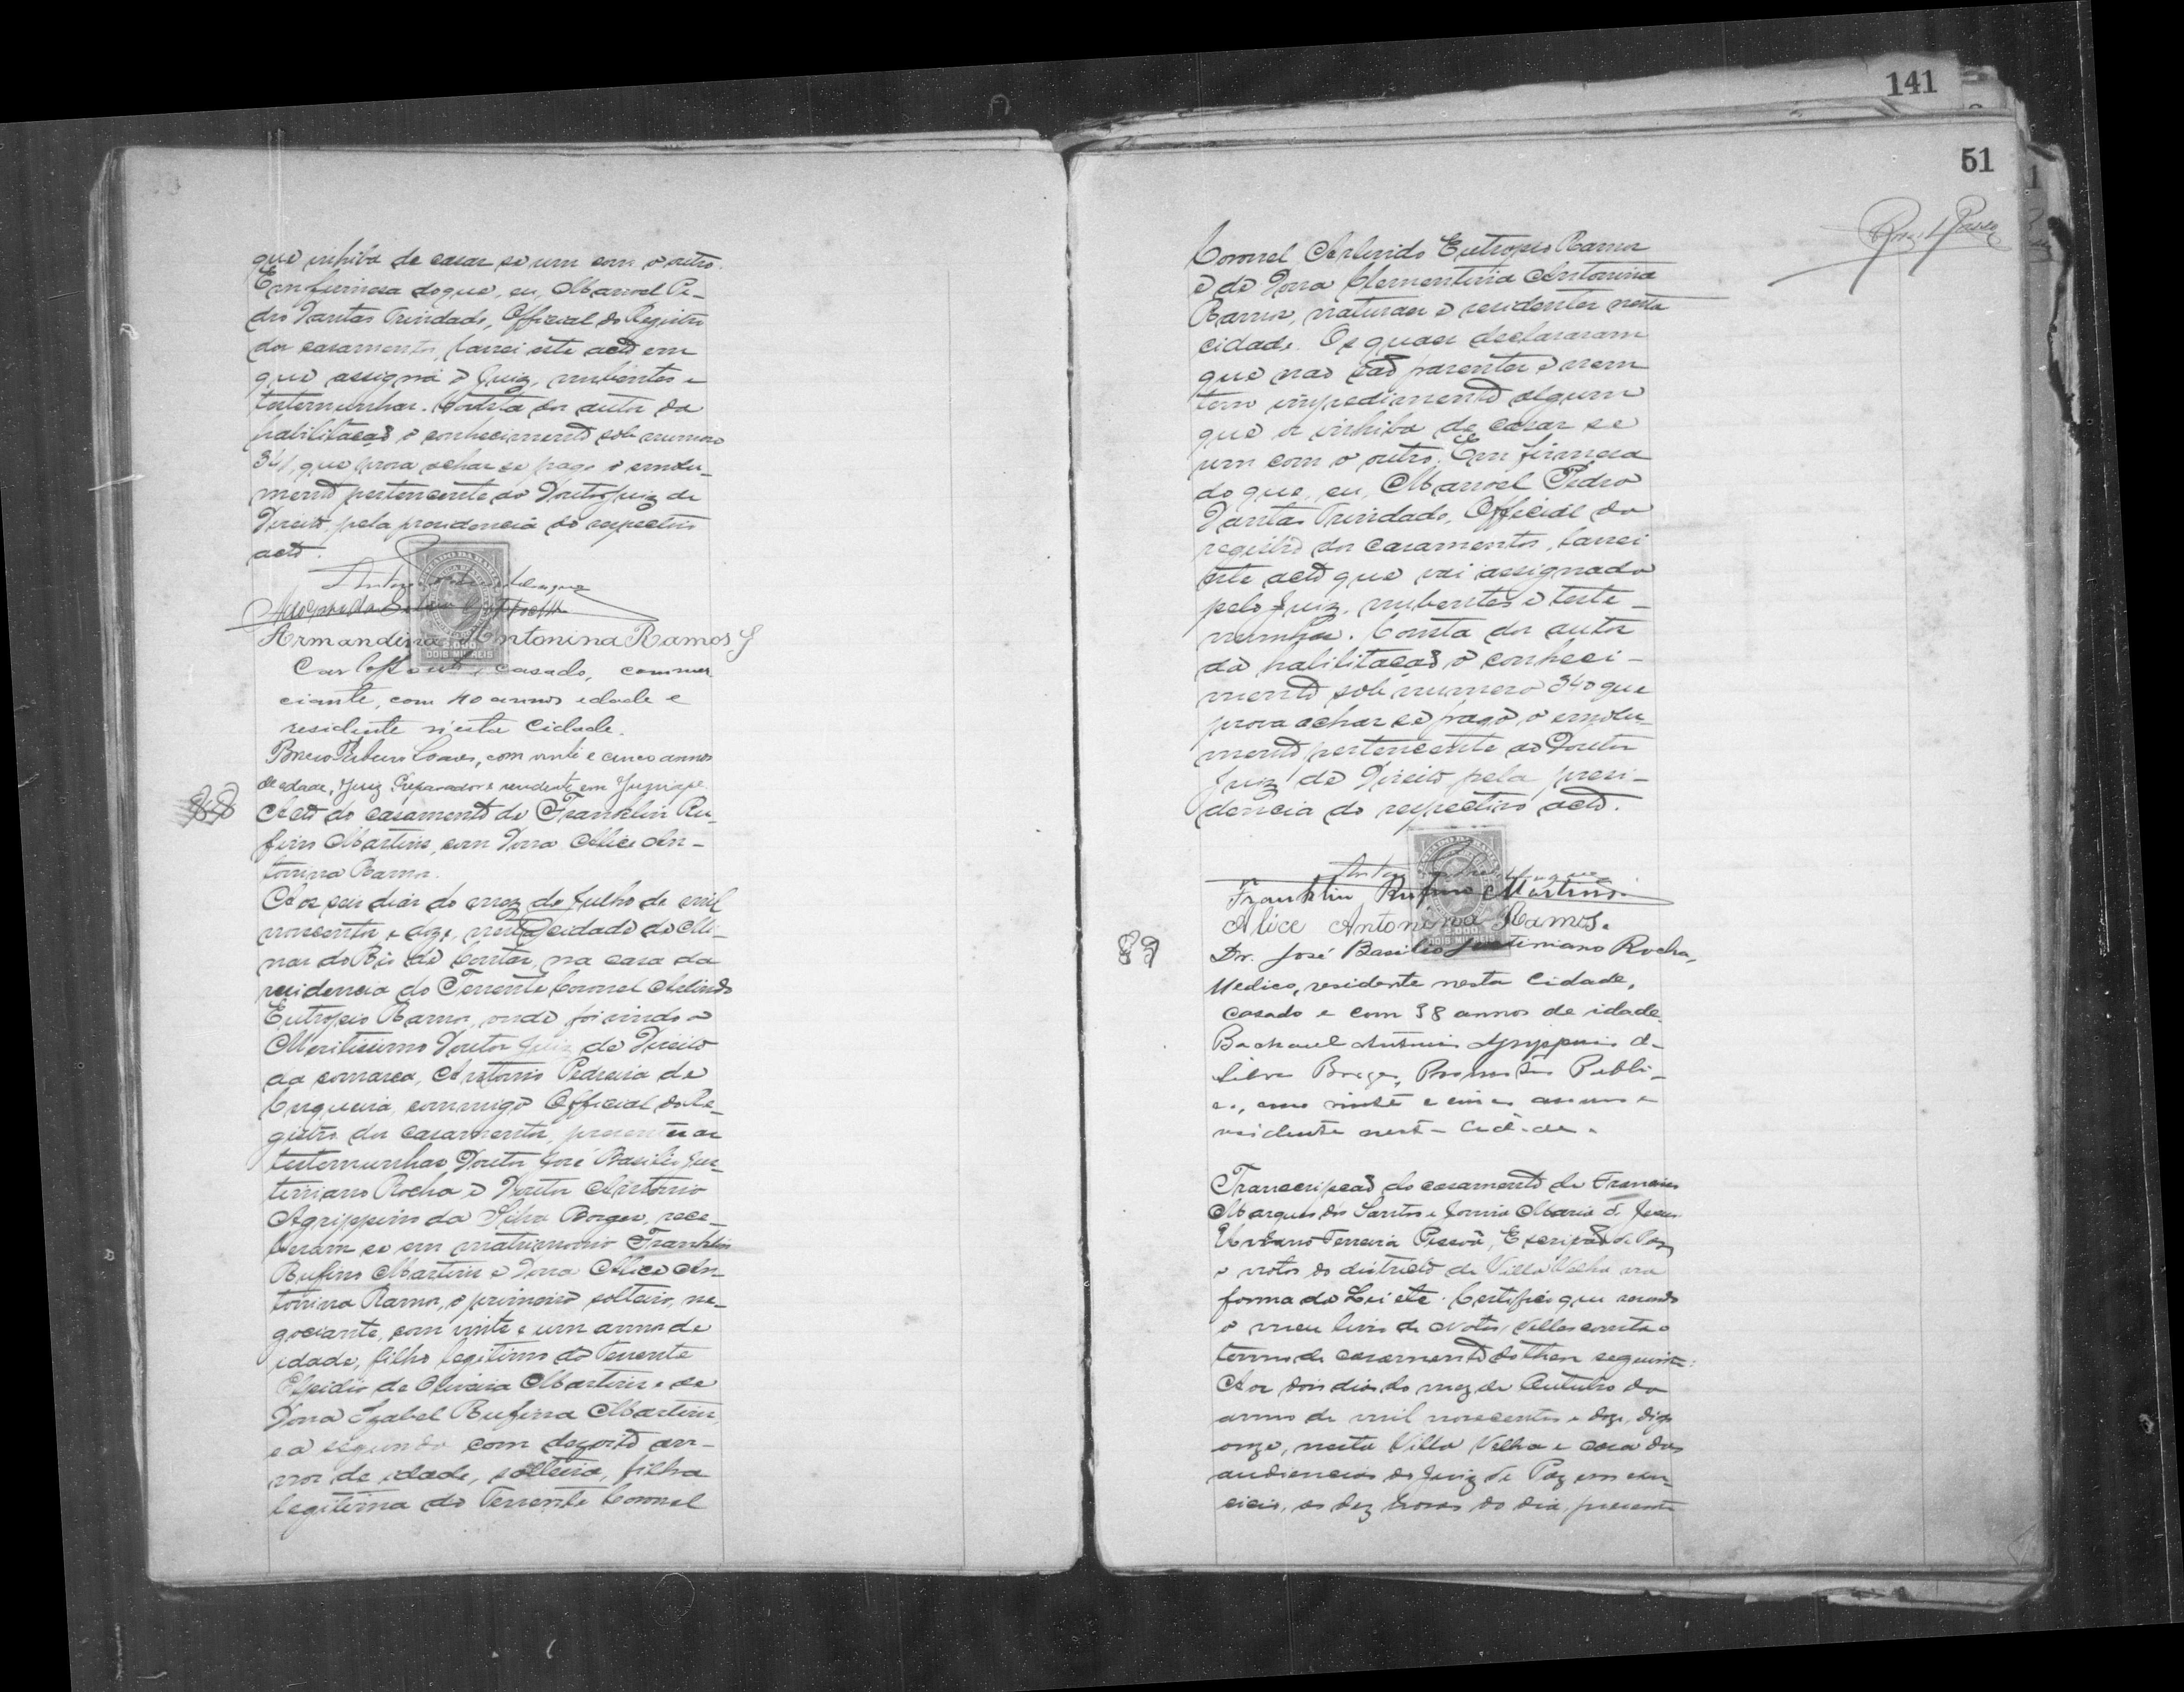 que inhiba de casar se um com o outro.
Em firmesa do que, eu, Manoel Pe-
dro Dantas Trindade, Official do Registro
dos casamentos, lavrei este acto em
que assigna o Juiz, nubentes e
testemunhas. Consta dos autos da
habilitação o conhecimento sob numero
341, que prova achar se pago o emolu-
mento pertencente ao Doutor Juiz de
Direito, pela presidencia do respectivo
acto.
ESTADO DA BAHIA
2.000
DOIS MIL REIS
Armandina Antonina Ramos
casado, commer
ciante, com 40 annos edade e
residente n'esta Cidade.
Soares, com vinte e cinco annos
de edade, Juiz Preparador e residente em
88
Acto do casamento de Franklin Ru-
fino Martins, com Dona Alice An-
tonina Ramos.
Aos seis dias do mez de Julho de mil
novecentos e doze, nesta cidade de Mi-
nas do Rio de Contas, na casa da
residencia do Tenente Coronel Arlindo
Eutropio Ramos, onde foi vindo o
Meritissimo Doutor Juiz de Direito
da comarca, Antonio Pedreira de
Cerqueira, commigo Official do Re-
gistro dos casamentos, presentes as
testemunhas Doutor José Basilio Jus-
tiniano Rocha e Doutor Antonio
Agrippino da Silva Borges, rece-
beram se em matrimonio Franklin
Rufino Martins e Dona Alice An-
tonina Ramos, o primeiro solteiro, ne-
gociante, com vinte e um annos de
idade, filho legitimo do Tenente
Elpidio de Oliveira Martins e de
Dona Izabel Rufina Martins,
e a segunda com dezoito an-
nos de idade, solteira, filha
legitima do Tenente Coronel
141
51
Coronel Arlindo Eutropio Ramos
e de Dona Clementina Antonina
Ramos, naturaes e residentes nesta
cidade. Os quaes declararam
que não são parentes e nem
tem impedimento algum
que os inhiba de casar se
um com o outro. Em firmesa
do que, eu, Manoel Pedro
Dantas Trindade, Official do
registro dos casamentos, lavrei
este acto que vai assignado
pelo Juiz, nubentes e teste-
munhas. Consta dos autos
da habilitação o conheci-
mento sob numero 340 que
prova achar se pago o emolu-
mento pertencente ao Doutor
Juiz de Direito pela presi-
dencia do respectivo acto.
ESTADO DA BAHIA
2.000
DOIS MIL REIS
Franklin Rufino Martins.
Alice Antonina Ramos.
89
Dr. José Basilio Justiniano Rocha,
Medico, residente nesta Cidade,
casado e com 38 annos de idade.
Bacharel Antonio Agrippino da
Silva Borges, Promotor Publi-
co, com vinte e cinco annos e
residente nesta Cidade.
Transcripção do casamento de Francisco
Marques dos Santos e Maria de Jesus
Ferreira Pessoa, Escrivão de Paz
e notas do districto de Villa Velha na
forma da Lei etc. Certifico que revendo
o meu livro de Notas, nelles consta o
termo de casamento do theor seguinte:
Aos dois dias do mez de Outubro do
anno de mil novecentos e doze, digo
onze, nesta Villa Velha e casa das
audiencias do Juiz de Paz em exer-
cicio, as dez horas do dia, presente